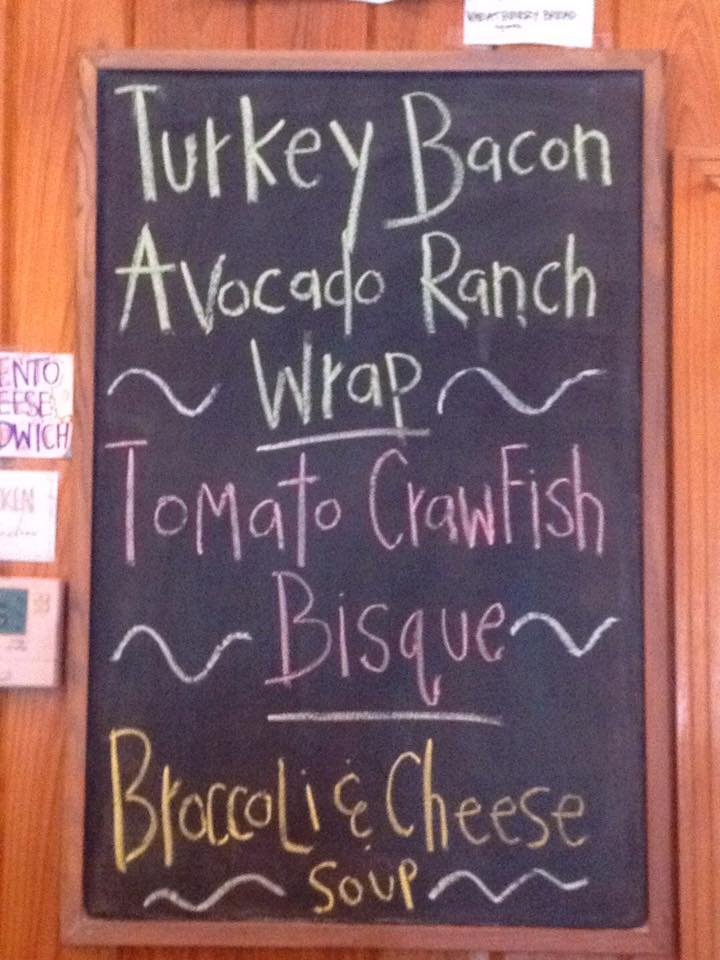 WHEATBERRY BREAD
Turkey Bacon
Avocado Ranch
Wrap
Tomato CrawFish
Bisque
Broccoli & Cheese
soup
ENTO
EESE
DWICH
KEN